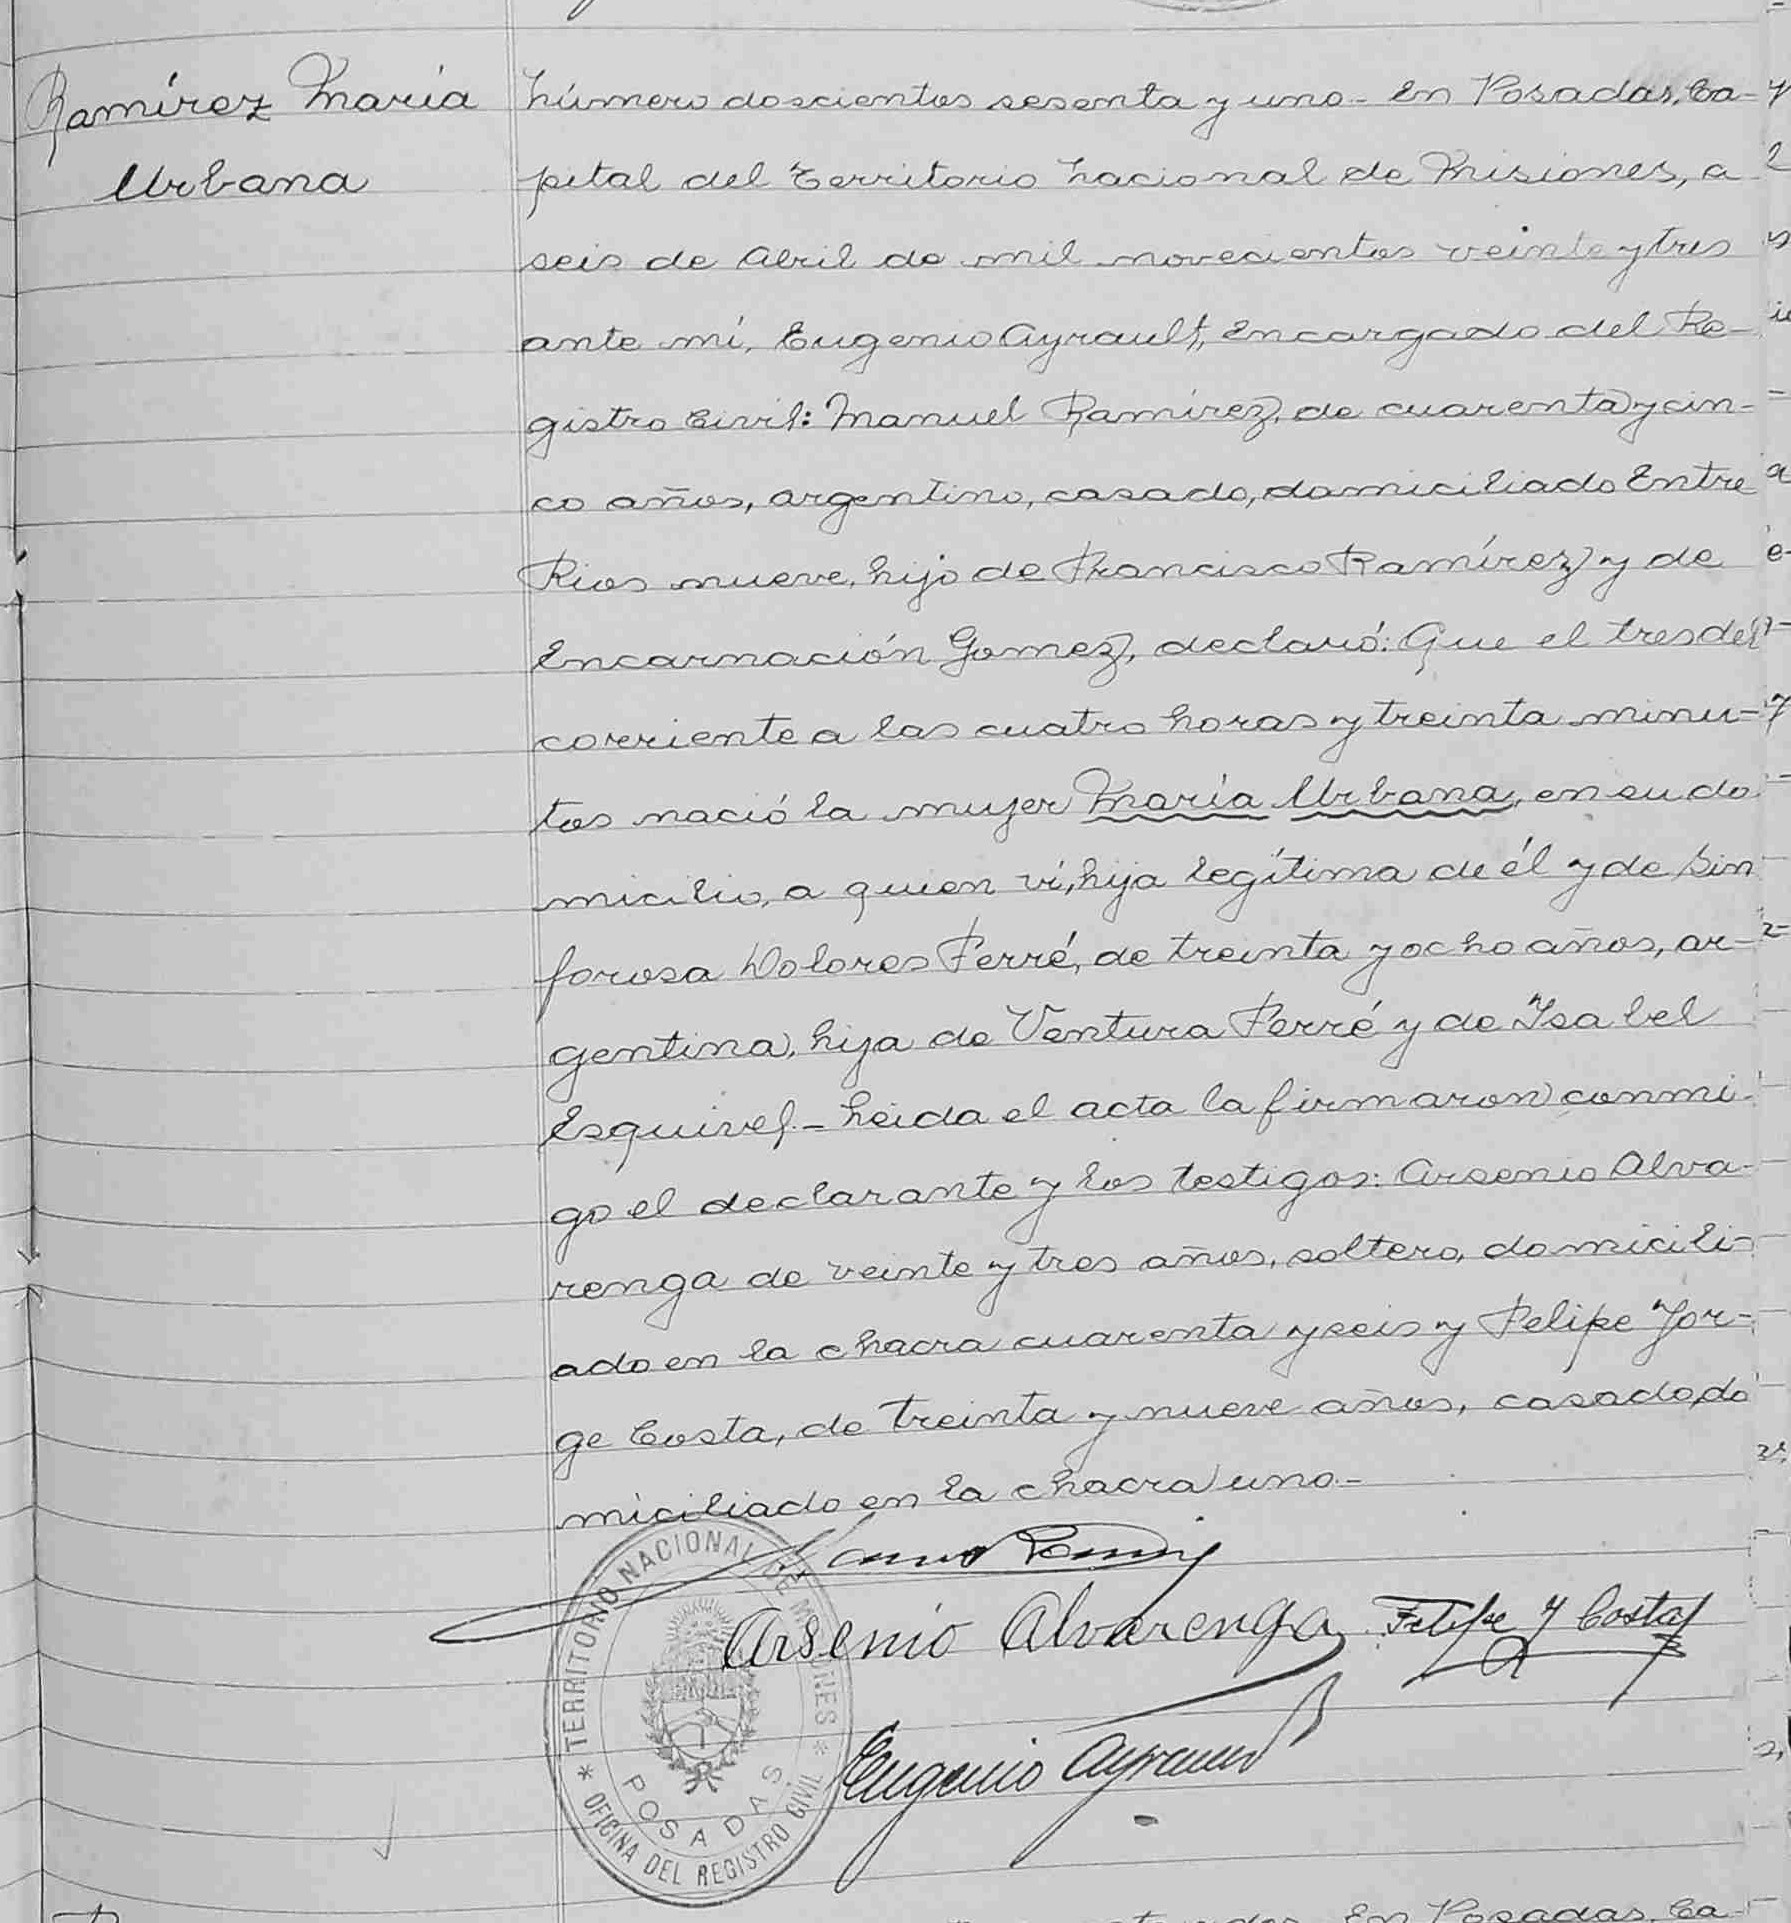 Ramírez María
Urbana
Número doscientos sesenta y uno - En Posadas, Ca-
pital del Territorio Nacional de Misiones, a
seis de Abril de mil novecientos veinte y tres
ante mí, Eugenio Ayrault, Encargado del Re-
gistro Civil: Manuel Ramírez, de cuarenta y cin-
co años, argentino, casado, domiciliado Entre
Rios nueve, hijo de Francisco Ramírez y de
Encarnación Gomez, declaró: Que el tres del
corriente a las cuatro horas y treinta minu-
tos nació la mujer María Urbana, en su do
micilio, a quien ví, hija legítima de él y de Sin
forosa Dolores Ferré, de treinta y ocho años, ar-
gentina, hija de Ventura Ferré y de Ysabel
Esquivel. - Leida el acta la firmaron conmi-
go el declarante y los testigos: Arsenio Alva-
renga de veinte y tres años, soltero, domicili-
ado en la chacra cuarenta y seis y Felipe Jor-
ge Costa, de treinta y nueve años, casado, do
miciliado en la chacra uno. -
Arsenio Alvarenga Felipe J Costa
Eugenio Ayrault
* TERRITORIO NACIONAL DE MISIONES *
POSADAS
OFICINA DEL REGISTRO CIVIL
En Posadas, Ca-